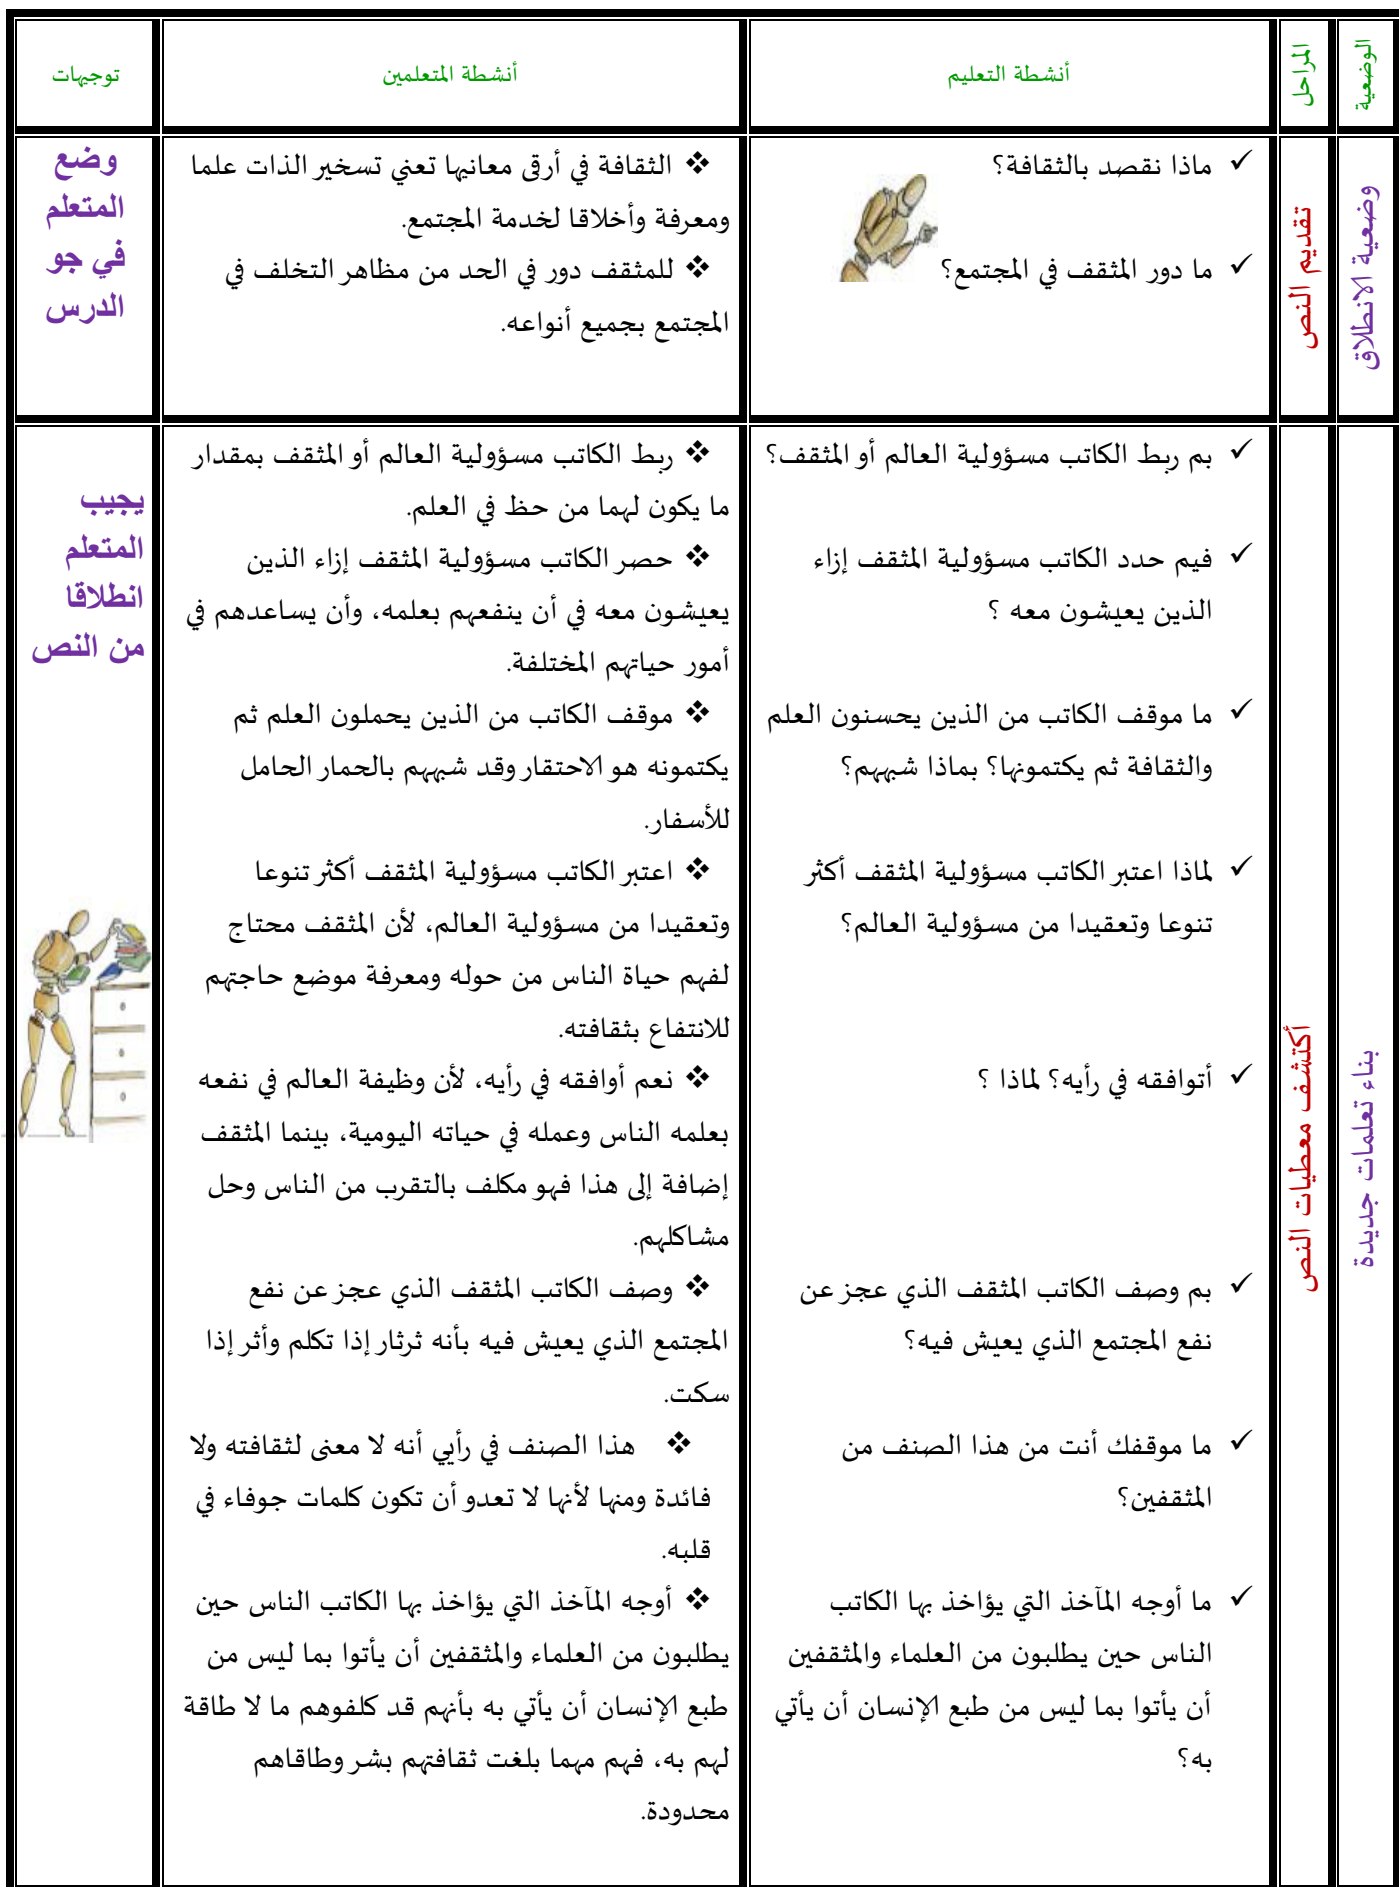 الوضعية
المراحل
أنشطة التعليم
أنشطة المتعلمين
توجيهات
وضعية الانطلاق
تقديم النص
✓ ماذا نقصد بالثقافة؟
✓ ما دور المثقف في المجتمع؟
❖ الثقافة في أرقى معانيها تعني تسخير الذات علما
ومعرفة وأخلاقا لخدمة المجتمع.
❖ للمثقف دور في الحد من مظاهر التخلف في
المجتمع بجميع أنواعه.
وضع
المتعلم
في جو
الدرس
بناء تعلمات جديدة
أكتشف معطيات النص
✓ بم ربط الكاتب مسؤولية العالم أو المثقف؟
✓ فيم حدد الكاتب مسؤولية المثقف إزاء
الذين يعيشون معه ؟
✓ ما موقف الكاتب من الذين يحسنون العلم
والثقافة ثم يكتمونها؟ بماذا شبههم؟
✓ لماذا اعتبر الكاتب مسؤولية المثقف أكثر
تنوعا وتعقيدا من مسؤولية العالم؟
✓ أتوافقه في رأيه؟ لماذا ؟
✓ بم وصف الكاتب المثقف الذي عجز عن
نفع المجتمع الذي يعيش فيه؟
✓ ما موقفك أنت من هذا الصنف من
المثقفين؟
✓ ما أوجه المآخذ التي يؤاخذ بها الكاتب
الناس حين يطلبون من العلماء والمثقفين
أن يأتوا بما ليس من طبع الإنسان أن يأتي
به؟
❖ ربط الكاتب مسؤولية العالم أو المثقف بمقدار
ما يكون لهما من حظ في العلم.
❖ حصر الكاتب مسؤولية المثقف إزاء الذين
يعيشون معه في أن ينفعهم بعلمه، وأن يساعدهم في
أمور حياتهم المختلفة.
❖ موقف الكاتب من الذين يحملون العلم ثم
يكتمونه هو الاحتقار وقد شبههم بالحمار الحامل
للأسفار.
❖ اعتبر الكاتب مسؤولية المثقف أكثر تنوعا
وتعقيدا من مسؤولية العالم، لأن المثقف محتاج
لفهم حياة الناس من حوله ومعرفة موضع حاجتهم
للانتفاع بثقافته.
❖ نعم أوافقه في رأيه، لأن وظيفة العالم في نفعه
بعلمه الناس وعمله في حياته اليومية، بينما المثقف
إضافة إلى هذا فهو مكلف بالتقرب من الناس وحل
مشاكلهم.
❖ وصف الكاتب المثقف الذي عجز عن نفع
المجتمع الذي يعيش فيه بأنه ثرثار إذا تكلم وأثر إذا
سكت.
❖ هذا الصنف في رأيي أنه لا معنى لثقافته ولا
فائدة ومنها لأنها لا تعدو أن تكون كلمات جوفاء في
قلبه.
❖ أوجه المآخذ التي يؤاخذ بها الكاتب الناس حين
يطلبون من العلماء والمثقفين أن يأتوا بما ليس من
طبع الإنسان أن يأتي به بأنهم قد كلفوهم ما لا طاقة
لهم به، فهم مهما بلغت ثقافتهم بشر وطاقاهم
محدودة.
يجيب
المتعلم
انطلاقا
من النص